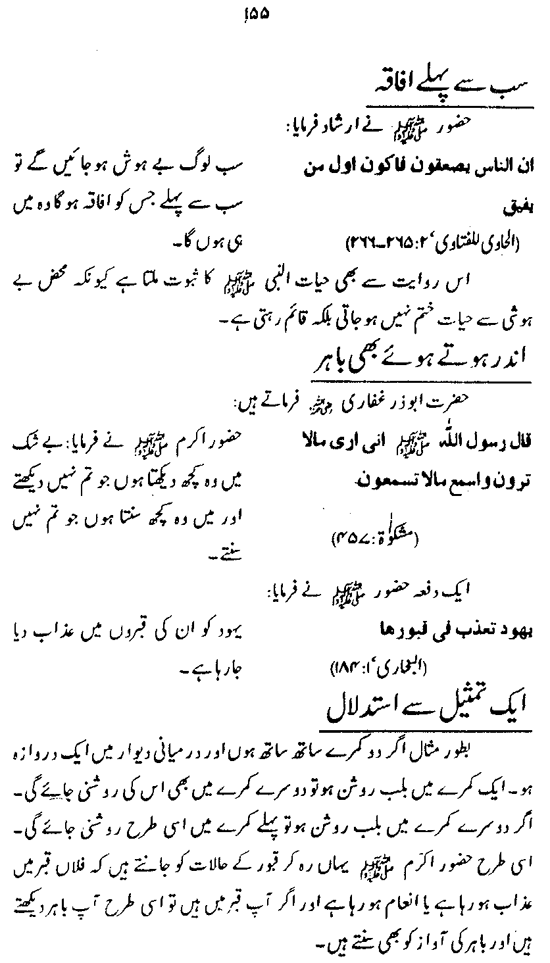 ۱۵۵
سب سے پہلے افاقہ
حضور ﷺ نے ارشاد فرمایا:
ان الناس یصعقون فاکون اول من
یفیق
(الحاوی للفتاوی، ۲:۲۶۵۔۲۶۶)
سب لوگ بے ہوش ہو جائیں گے تو
سب سے پہلے جس کو افاقہ ہو گا وہ میں
ہی ہوں گا۔
اس روایت سے بھی حیات النبی ﷺ کا ثبوت ملتا ہے کیونکہ محض بے
ہوشی سے حیات ختم نہیں ہو جاتی بلکہ قائم رہتی ہے۔
اندر ہوتے ہوئے بھی باہر
حضرت ابوذر غفاری رضی اللہ عنہ فرماتے ہیں:
قال رسول اللّٰہ ﷺ انی اری مالا
ترون واسمع مالا تسمعون۔
(مشکوٰۃ:۴۵۷)
حضور اکرم ﷺ نے فرمایا: بے شک
میں وہ کچھ دیکھتا ہوں جو تم نہیں دیکھتے
اور میں وہ کچھ سنتا ہوں جو تم نہیں
سنتے۔
ایک دفعہ حضور ﷺ نے فرمایا:
یہود تعذب فی قبورھا
(البخاری، ۱:۱۸۴)
یہود کو ان کی قبروں میں عذاب دیا
جا رہا ہے۔
ایک تمثیل سے استدلال
بطور مثال اگر دو کمرے ساتھ ساتھ ہوں اور درمیانی دیوار میں ایک دروازہ
ہو۔ ایک کمرے میں بلب روشن ہو تو دوسرے کمرے میں بھی اس کی روشنی جائے گی۔
اگر دوسرے کمرے میں بلب روشن ہو تو پہلے کمرے میں اسی طرح روشنی جائے گی۔
اسی طرح حضور اکرم ﷺ یہاں رہ کر قبور کے حالات کو جانتے ہیں کہ فلاں قبر میں
عذاب ہو رہا ہے یا انعام ہو رہا ہے اور اگر آپ قبر میں ہیں تو اسی طرح آپ باہر دیکھتے
ہیں اور باہر کی آواز کو بھی سنتے ہیں۔